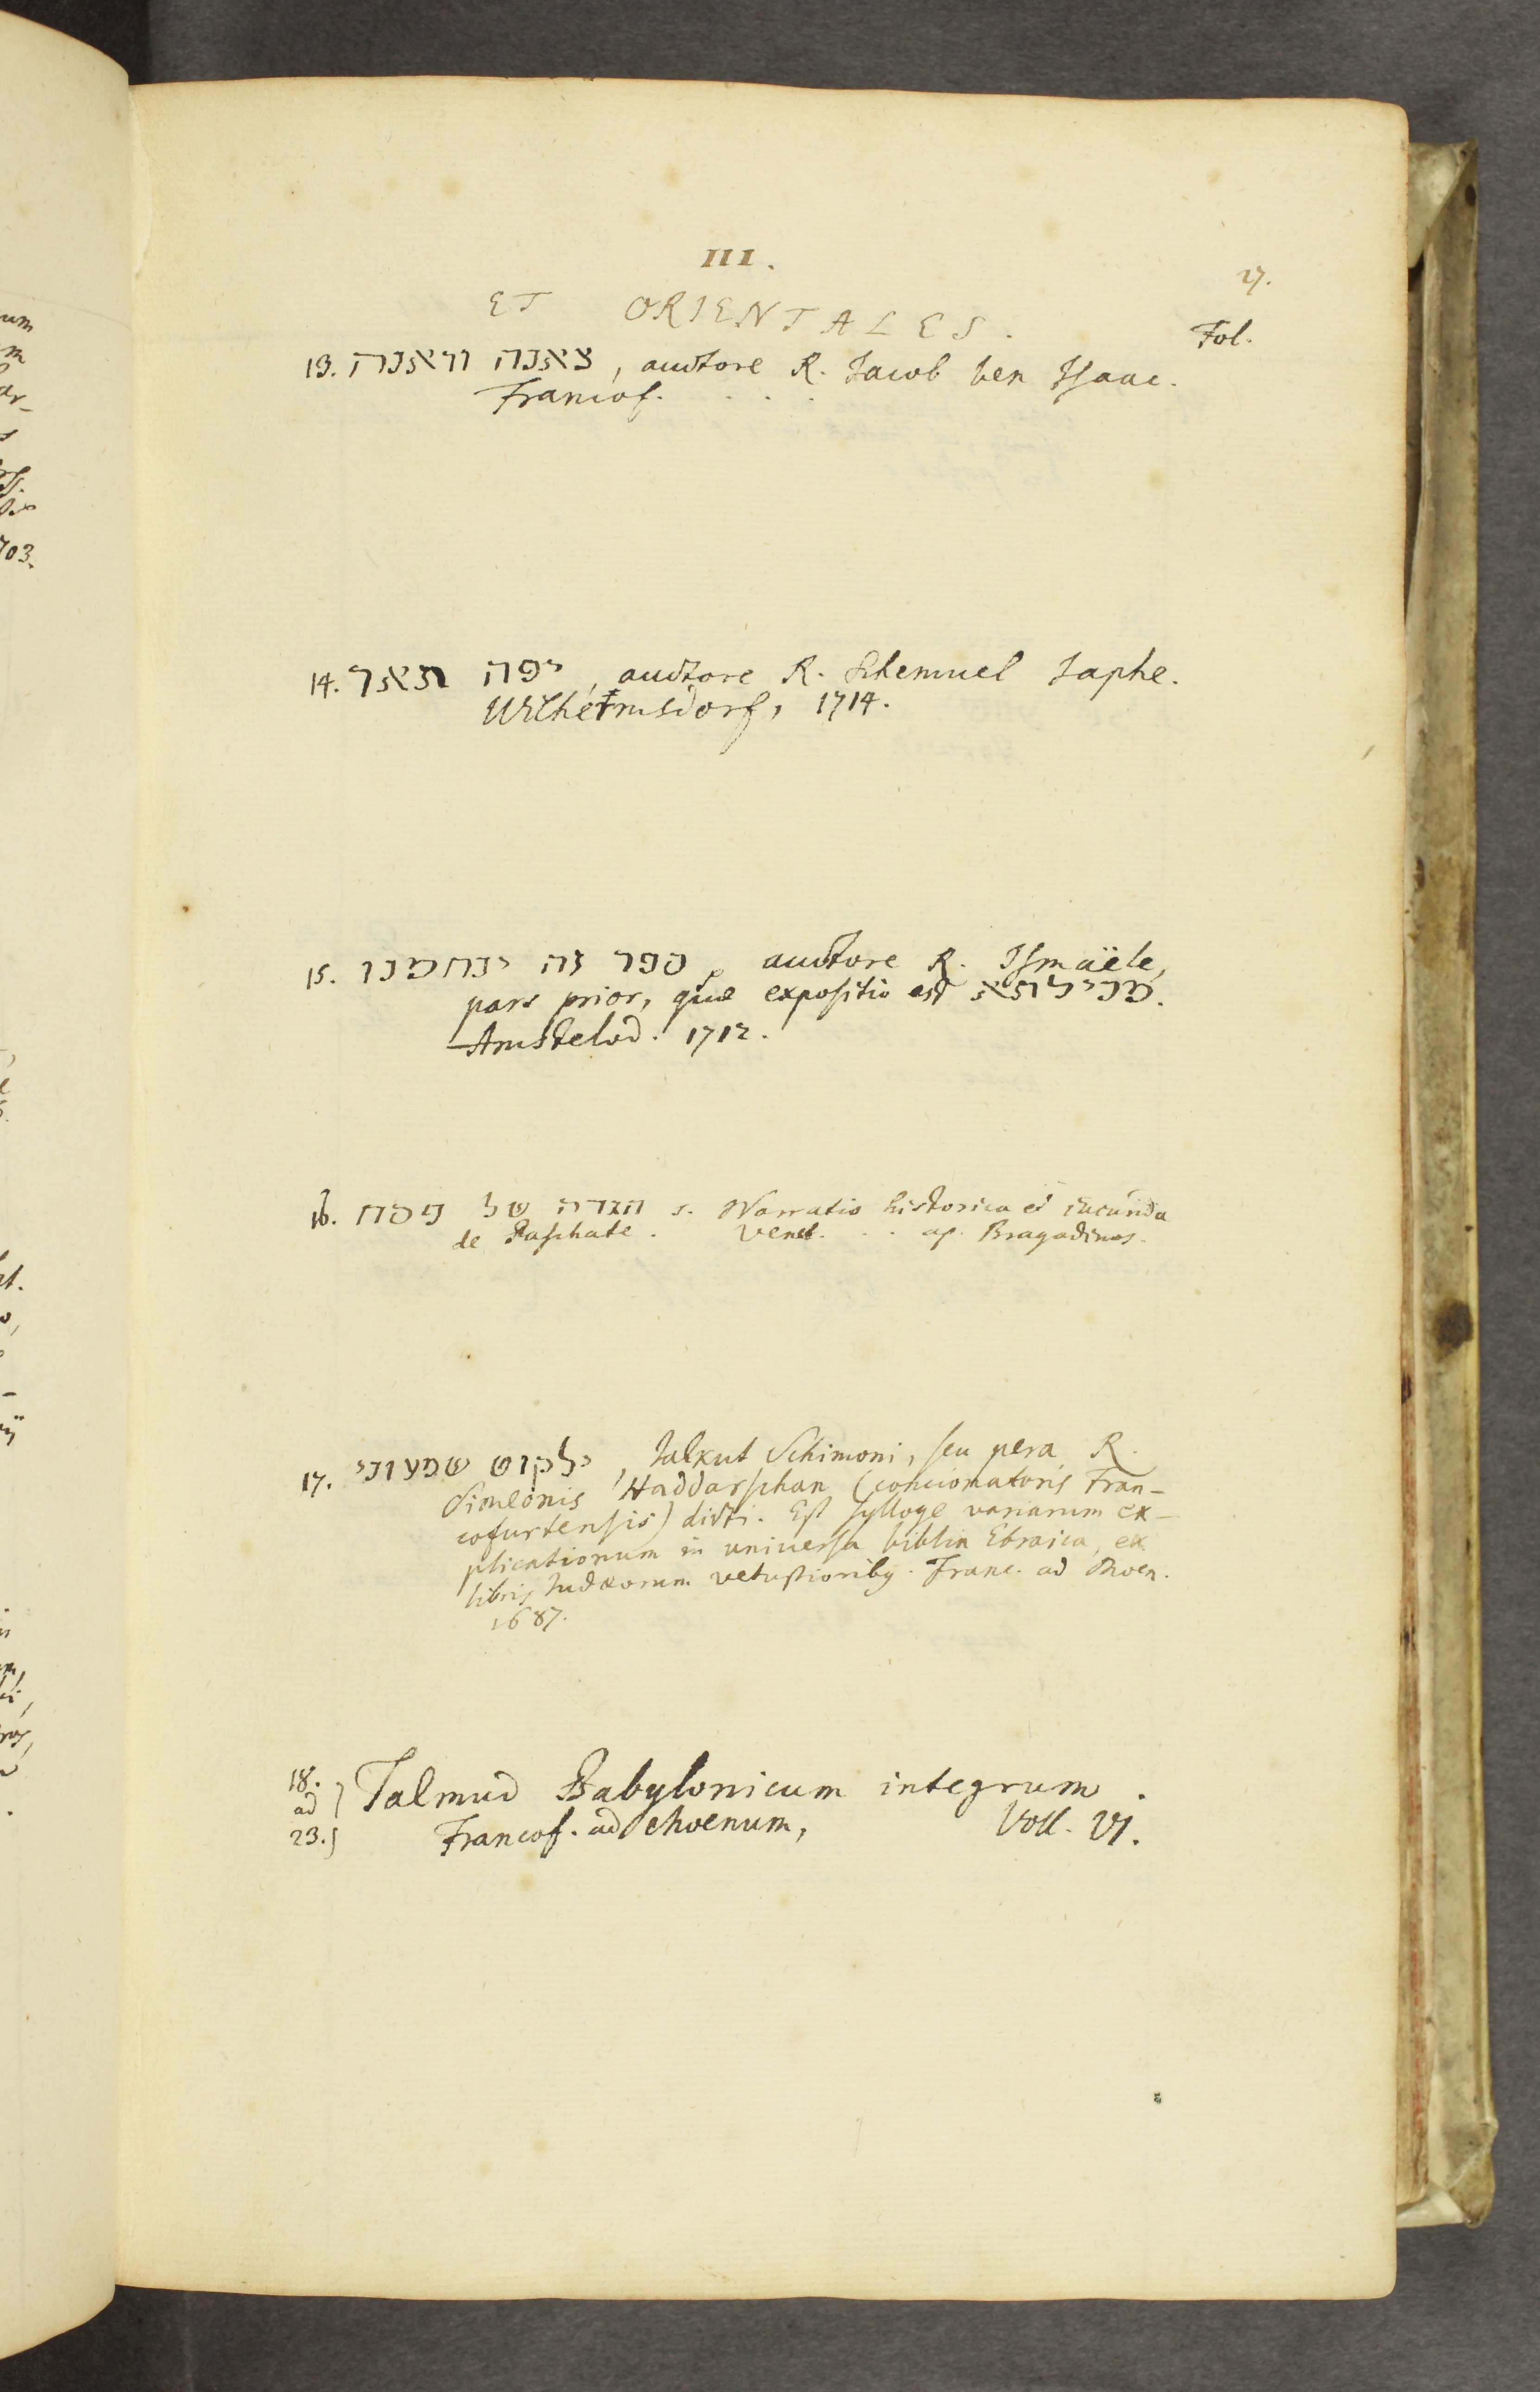 III.
27.
ET ORIENTALES.
Fol.
13. צאנה וראנה, auctore R. Jacob ben Isaac.
Francof. . . . .
14. יפה תאר, auctore R. Schemuel Japhe.
Wilhermsdorf, 1714.
15. ספר זה ינחמנו, auctore R. Ismaële,
pars prior, quæ expositio est מכילתא.
Amstelod. 1712.
16. הגדה של פסח s. Narratio historica et iucunda
de Paschate. Venet. . . ap. Bragadinos.
17. ילקוט שמעוני, Jalkut Schimoni, seu pera R.
Simeonis Haddarschan (concionatoris Fran-
cofurtensis) dicti. Est sylloge variarum ex-
plicationum in universa biblia Ebraica, ex
libris Judæorum vetustioribq. Franc. ad Moen.
1687.
18. ad 23. Talmud Babylonicum integrum.
Francof. ad Moenum, Voll. VI.